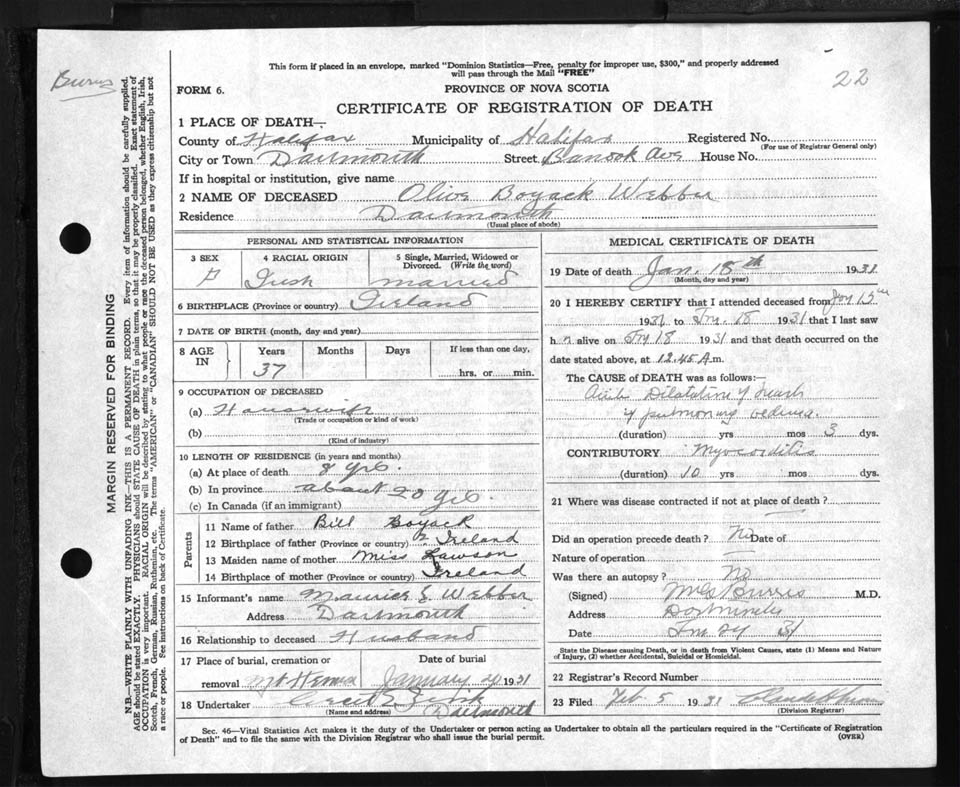 This form if placed in an envelope, marked "Dominion Statistics—Free, penalty for improper use, $300," and properly addressed
will pass through the Mail "FREE"
22
Burns
FORM 6.
PROVINCE OF NOVA SCOTIA
CERTIFICATE OF REGISTRATION OF DEATH
1 PLACE OF DEATH—
County of Halifax Municipality of Halifax Registered No.
(For use of Registrar General only)
City or Town Dartmouth Street Banook Ave House No.
If in hospital or institution, give name
2 NAME OF DECEASED Olive Boyack Webber
Residence Dartmouth
(Usual place of abode)
PERSONAL AND STATISTICAL INFORMATION
3 SEX 4 RACIAL ORIGIN 5 Single, Married, Widowed or Divorced. (Write the word)
F Irish married
6 BIRTHPLACE (Province or country) Ireland
7 DATE OF BIRTH (month, day and year)
8 AGE IN Years Months Days If less than one day,
37 hrs. or min.
9 OCCUPATION OF DECEASED
(a) Housewife
(Trade or occupation or kind of work)
(b)
(Kind of industry)
10 LENGTH OF RESIDENCE (in years and months)
(a) At place of death 8 yrs.
(b) In province about 20 yrs.
(c) In Canada (if an immigrant)
Parents
11 Name of father Bill Boyack
12 Birthplace of father (Province or country) Ireland
13 Maiden name of mother Miss Lawson
14 Birthplace of mother (Province or country) Ireland
15 Informant's name Maurice S. Webber
Address Dartmouth
16 Relationship to deceased Husband
17 Place of burial, cremation or Date of burial
removal Mt Hermon January 20 1931
18 Undertaker Dartmouth
(Name and address)
MEDICAL CERTIFICATE OF DEATH
19 Date of death Jan. 18th 1931
(Month, day and year)
20 I HEREBY CERTIFY that I attended deceased from Jany 15th
1931 to Jny. 18 1931 that I last saw
h r alive on Jny 18 1931 and that death occurred on the
date stated above, at 12.45 A.m.
The CAUSE OF DEATH was as follows:—
Acute Dilatation of heart
& pulmonary oedema.
(duration) yrs mos 3 dys.
CONTRIBUTORY Myocarditis
(duration) 10 yrs mos dys.
21 Where was disease contracted if not at place of death?
Did an operation precede death? No Date of
Nature of operation
Was there an autopsy? No
(Signed) Burris M.D.
Address Dartmouth
Date Jny 24 31
State the Disease causing Death, or in death from Violent Causes, state (1) Means and Nature
of Injury, (2) whether Accidental, Suicidal or Homicidal.
22 Registrar's Record Number
23 Filed Feb. 5 1931
(Division Registrar)
Sec. 46—Vital Statistics Act makes it the duty of the Undertaker or person acting as Undertaker to obtain all the particulars required in the "Certificate of Registration
of Death" and to file the same with the Division Registrar who shall issue the burial permit.
(OVER)
MARGIN RESERVED FOR BINDING
N.B.—WRITE PLAINLY WITH UNFADING INK—THIS IS A PERMANENT RECORD. Every item of information should be carefully supplied.
AGE should be stated EXACTLY. PHYSICIANS should STATE CAUSE OF DEATH in plain terms, so that it may be properly classified. Exact statement of
OCCUPATION is very important. RACIAL ORIGIN will be described by stating to what people or race the deceased person belonged, whether English, Irish,
Scotch, French, German, Russian, Ruthenian, etc. The terms "AMERICAN" or "CANADIAN" SHOULD NOT BE USED as they express citizenship but not
a race or people. See instructions on back of Certificate.